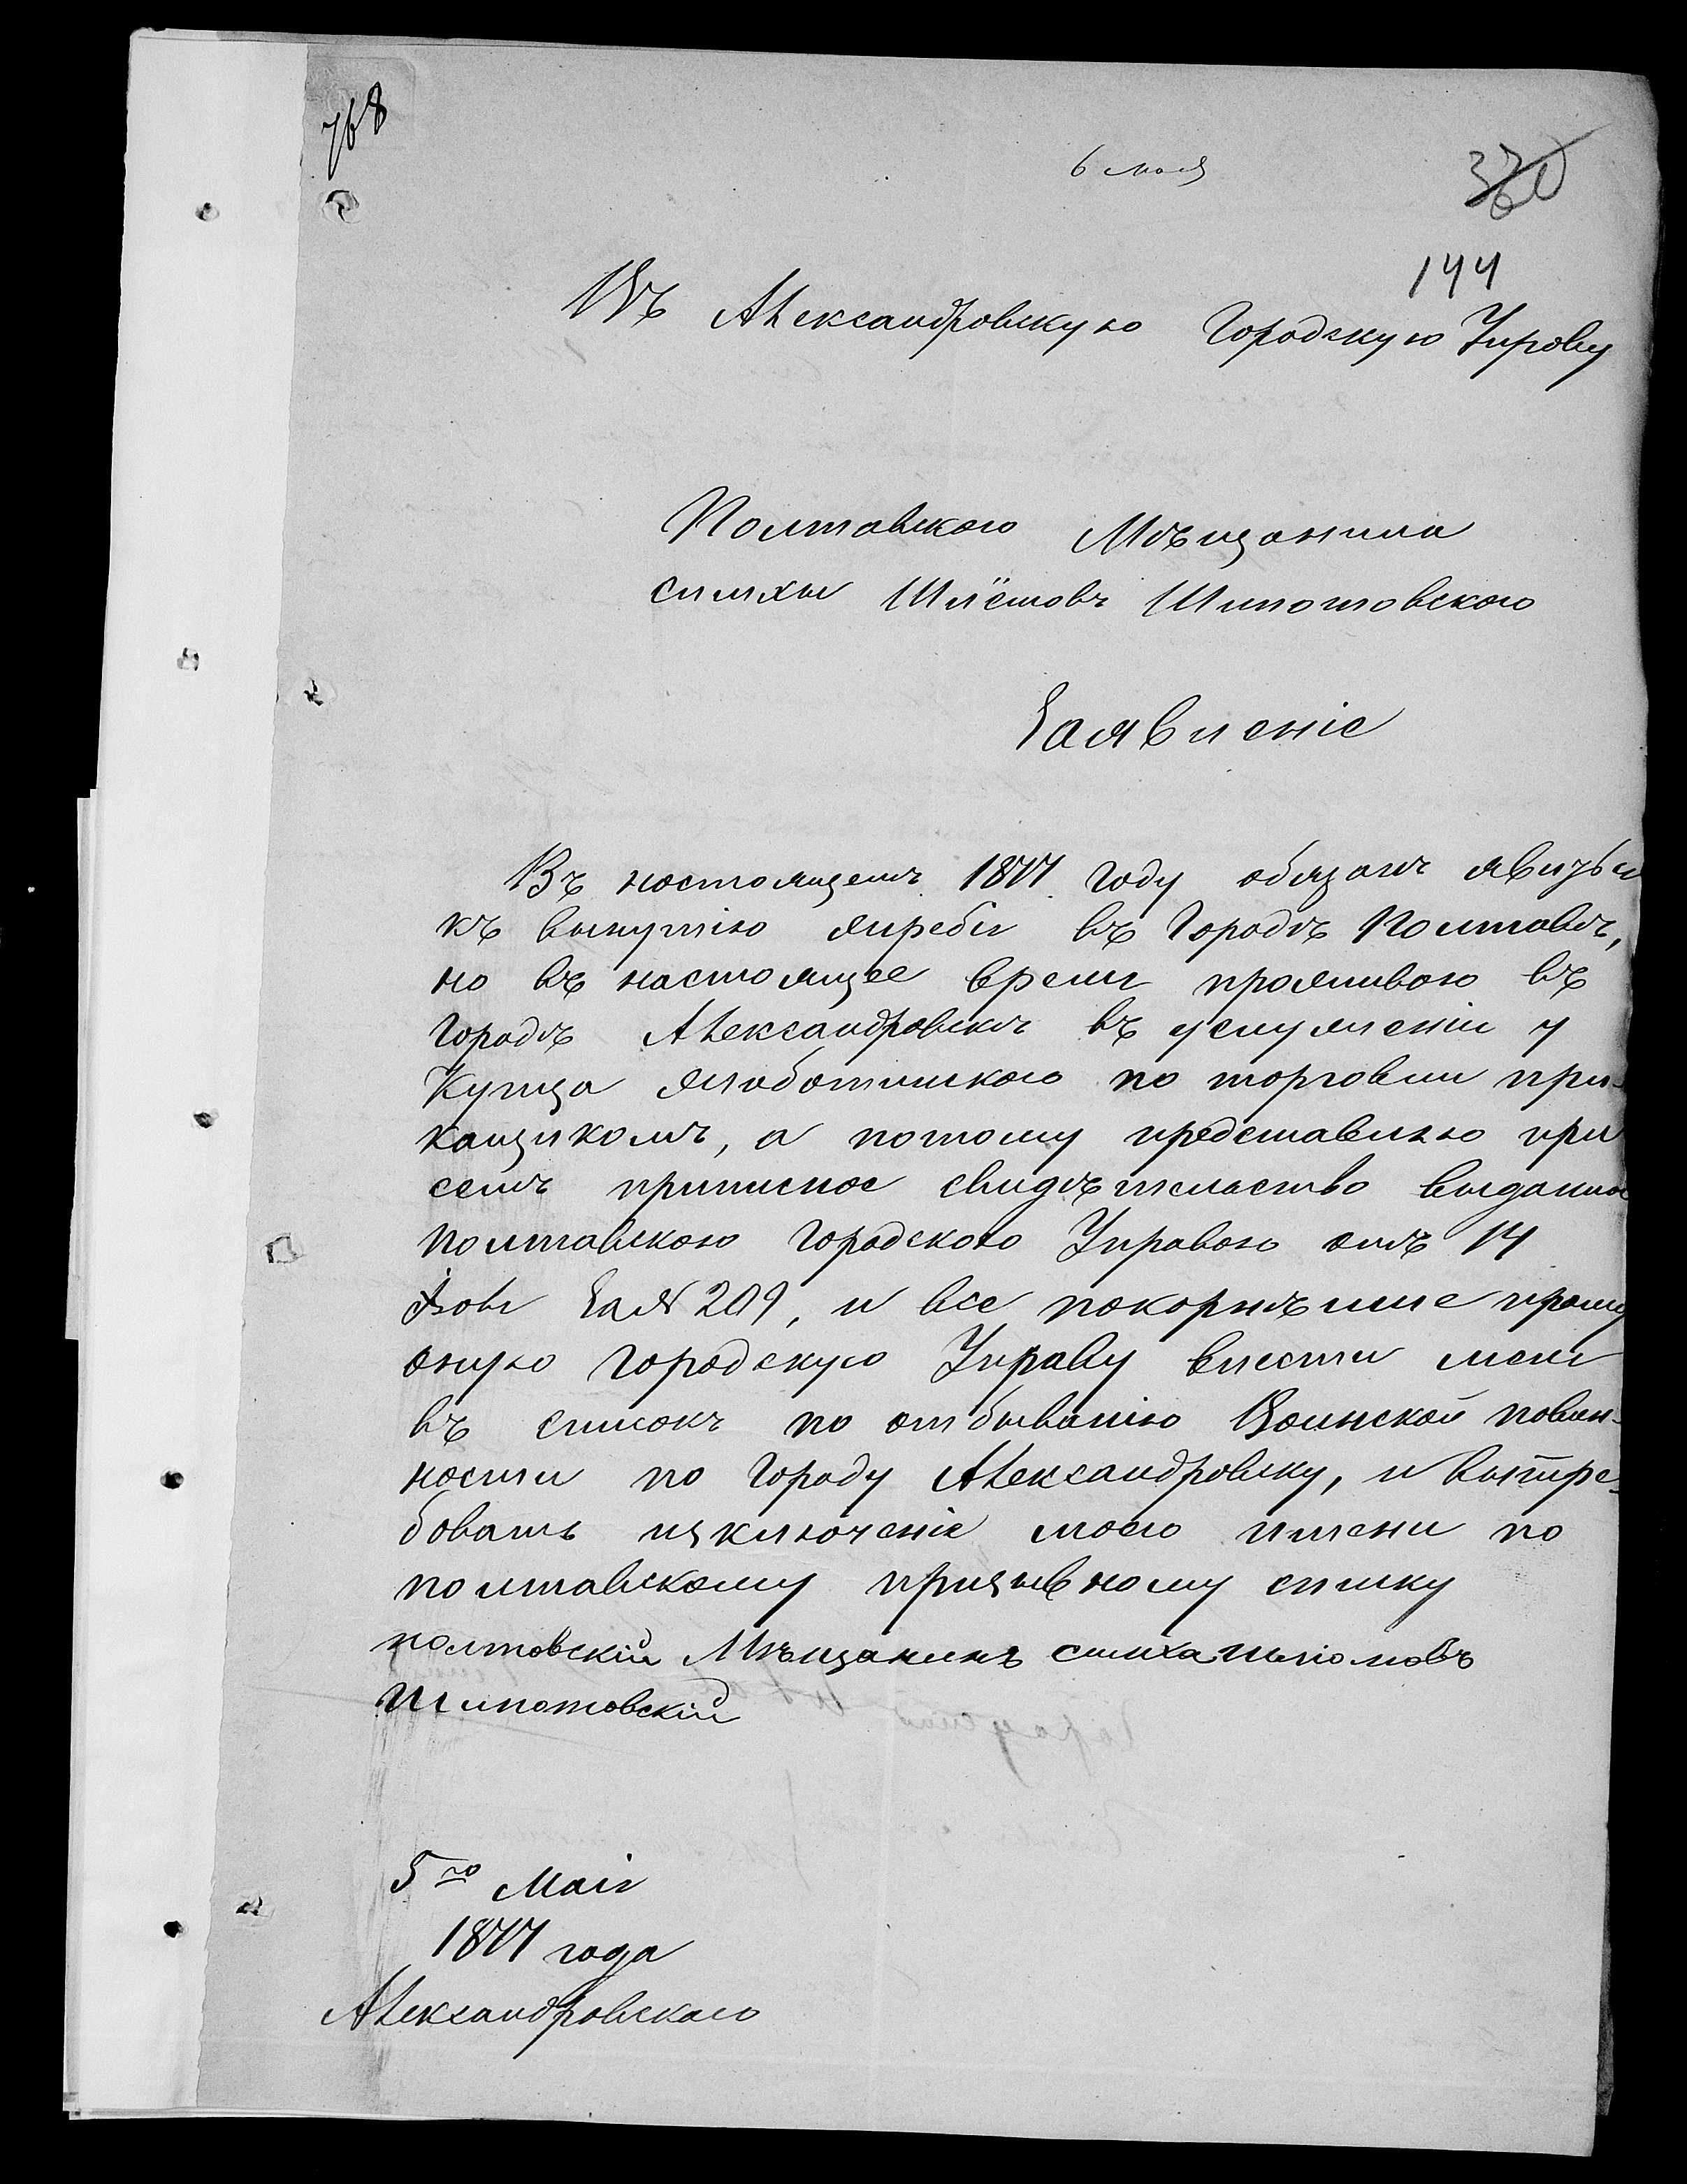 768
6 мая
144
Въ Александровскую Городскую Управу
Полтавского Мѣщанина
симхи Шлёмовъ Шпотовского
Заявленіе
Въ настоящемъ 1877 году обязанъ явится
къ вынутію жребія въ Городѣ Полтавѣ,
но въ настоящее время проживаю въ
Городѣ Александровскѣ въ услуженіи у
Купца Жаботинского по торговли при-
кащикомъ, а потому представляю при
семъ приписное свидѣтельство выданное
Полтавскою Городскою Управою отъ 14
За № 209, и все покорнѣише прошу
оную городскую Управу внести меня
въ список по отбыванію Воинской повин-
ности по Городу Александровску, и вытре-
бовать изключеніе моего имени по
полтавскому призывному списку
полтовскій Мѣщанинъ симха шліомовъ
Шпотовскій
5го Маія
1877 года
Александровского